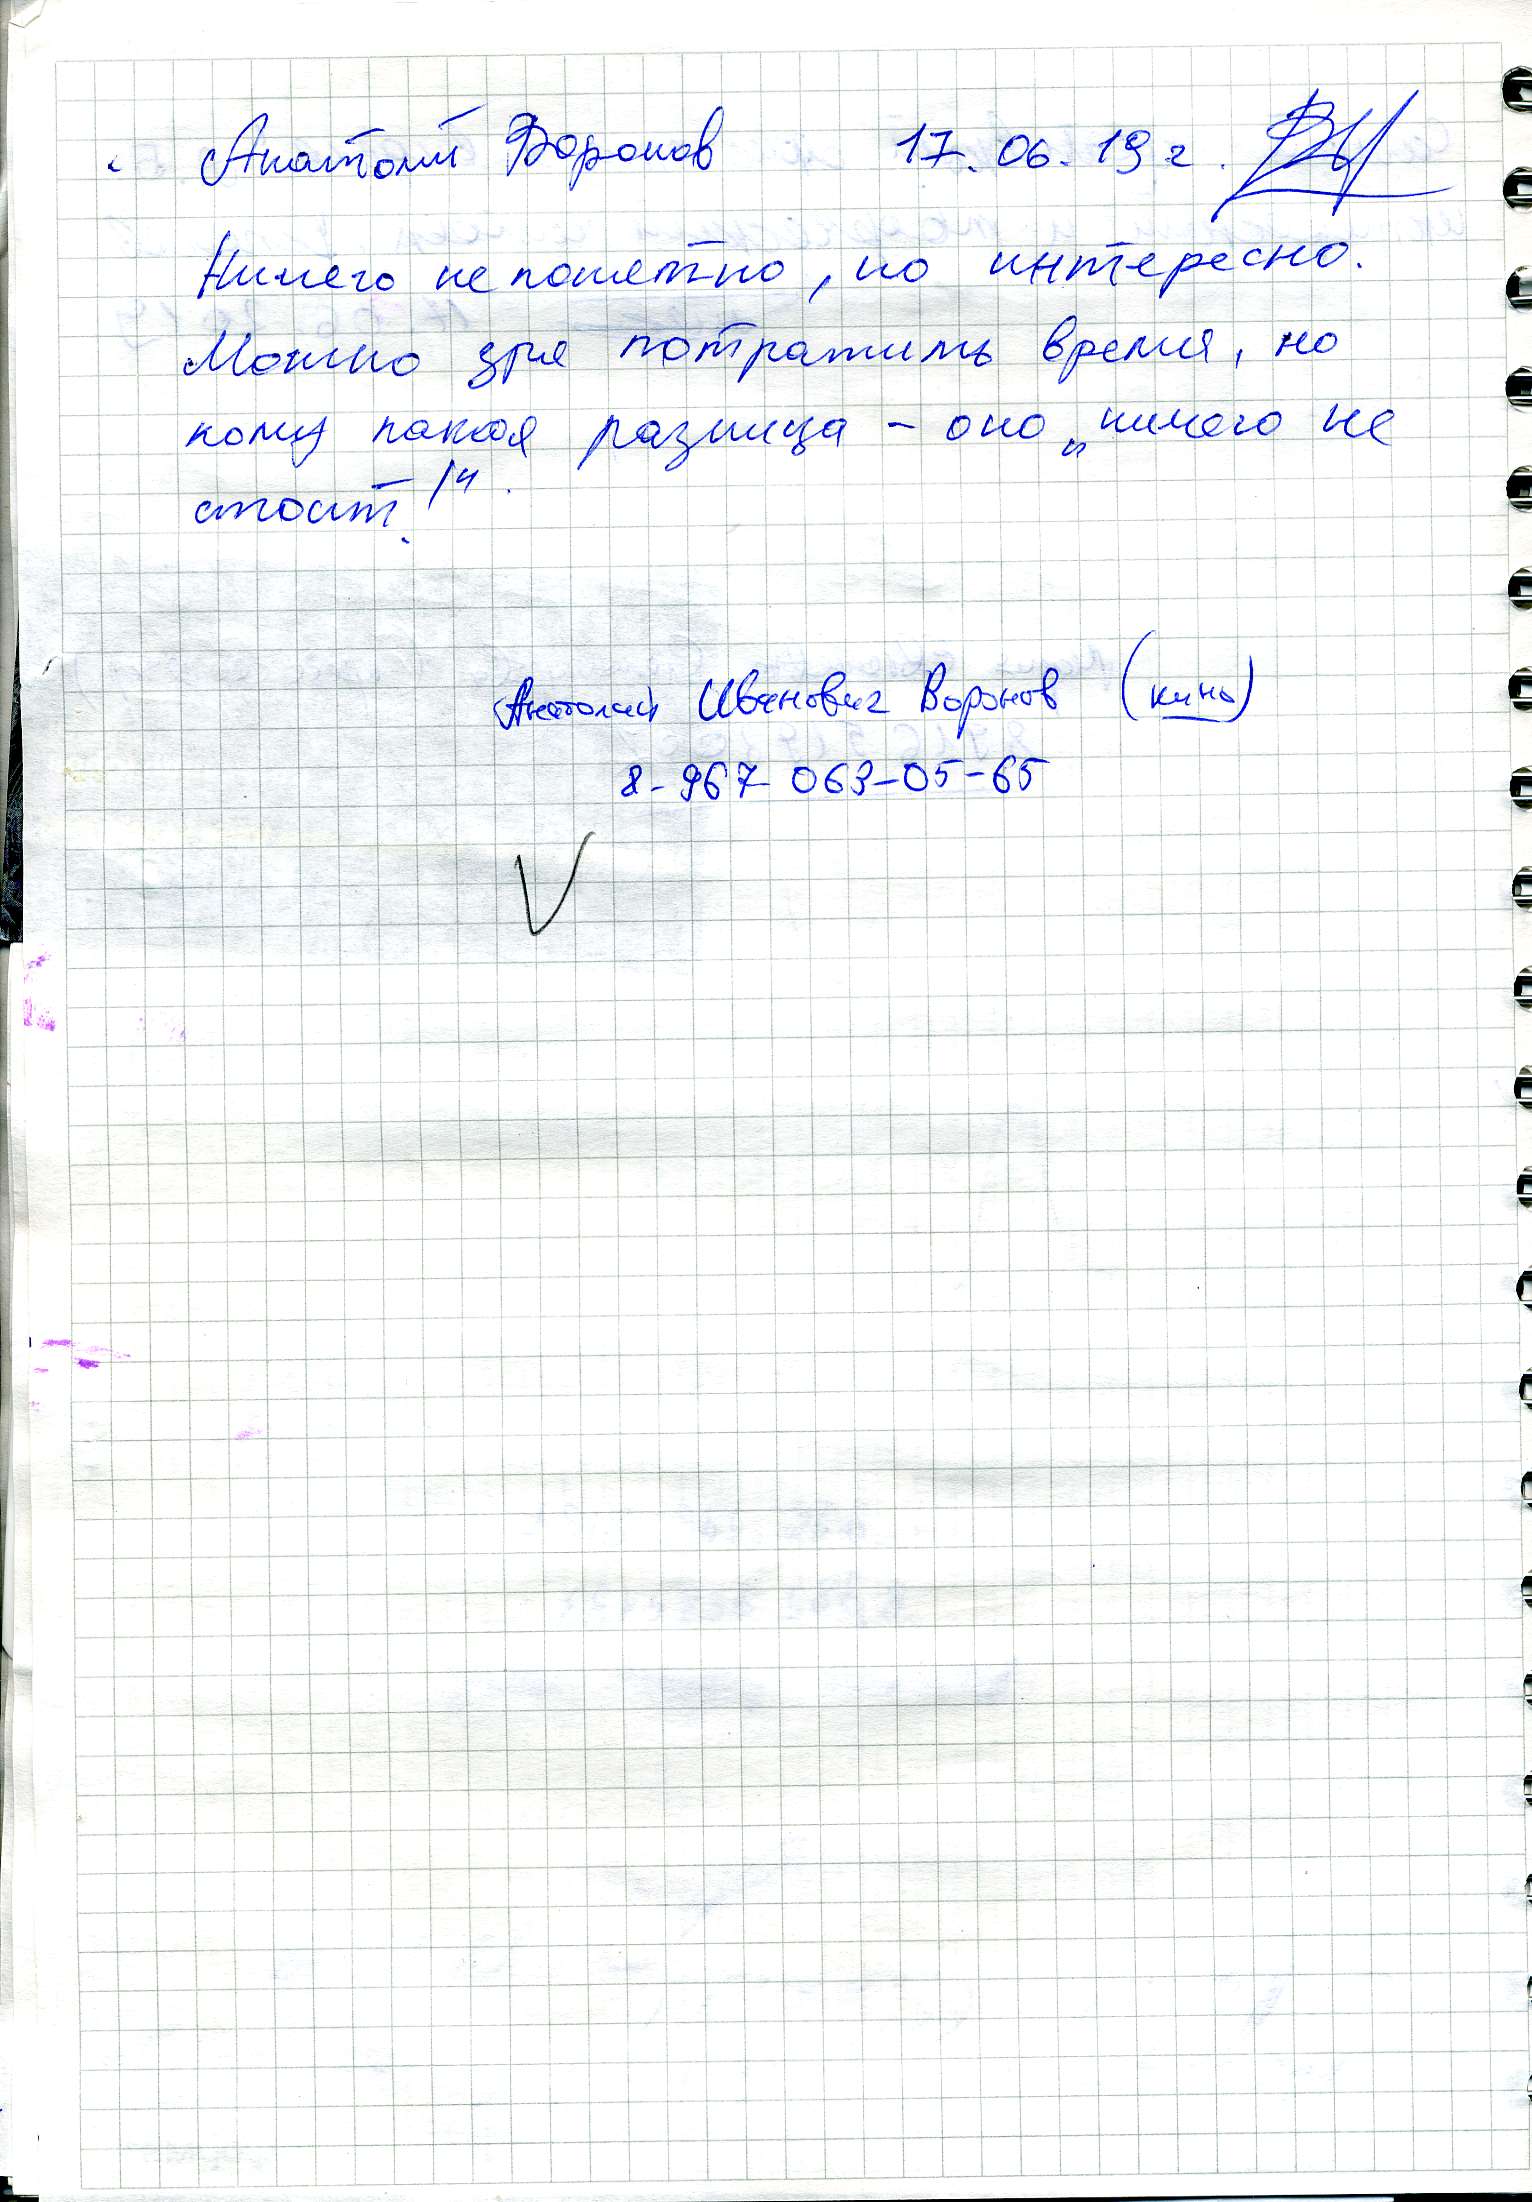 Анатолий Воронов 17.06.19 г.
Ничего не понятно, но интересно.
Можно зря потратить время, но
кому какая разница – оно „ничего не
стоит!“.
Анатолий Иванович Воронов (кино)
8-967-063-05-65